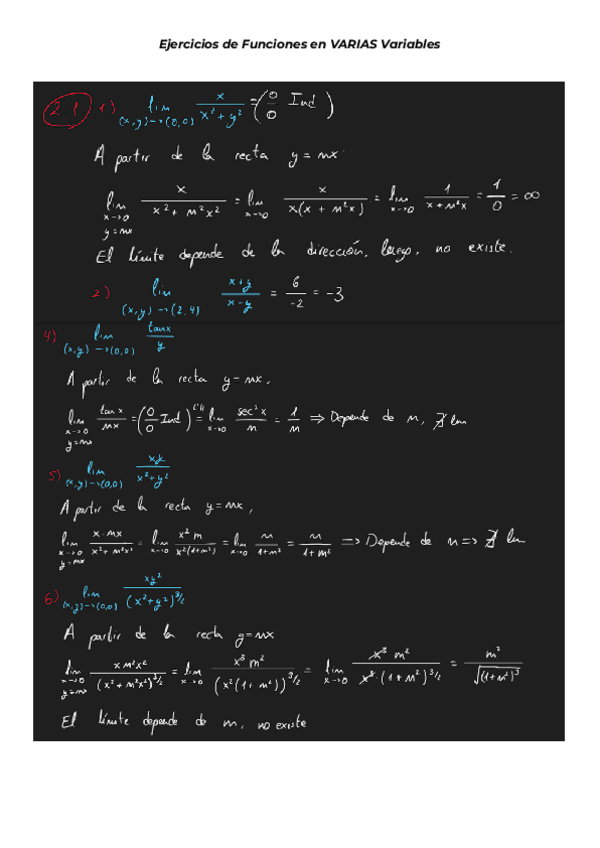 Ejercicios de Funciones en VARIAS Variables
2.1 1) lim (x,y)→(0,0) x/(x²+y²) = (0/0 Ind)
A partir de la recta y=mx.
lim x→0 y=mx x/(x²+m²x²) = lim x→0 x/(x(x+m²x)) = lim x→0 1/(x+m²x) = 1/0 = ∞
El límite depende de la dirección, luego, no existe.
2) lim (x,y)→(2,4) (x+y)/(x-y) = 6/-2 = -3
4) lim (x,y)→(0,0) tanx/y
A partir de la recta y=mx,
lim x→0 y=mx tan x/mx = (0/0 Ind) L'H = lim x→0 sec²x/m = 1/m ⇒ Depende de m, ∄ lim
5) lim (x,y)→(0,0) xy/(x²+y²)
A partir de la recta y=mx,
lim x→0 y=mx x·mx/(x²+m²x²) = lim x→0 x²m/(x²(1+m²)) = lim x→0 m/(1+m²) = m/(1+m²) ⇒ Depende de m ⇒ ∄ lim
6) lim (x,y)→(0,0) xy²/(x²+y²)^3/2
A partir de la recta y=mx
lim x→0 y=mx x m²x²/(x²+m²x²)^3/2 = lim x→0 x³m²/(x²(1+m²))^3/2 = lim x→0 x³m²/(x³·(1+m²)^3/2) = m²/√(1+m²)³
El límite depende de m, no existe